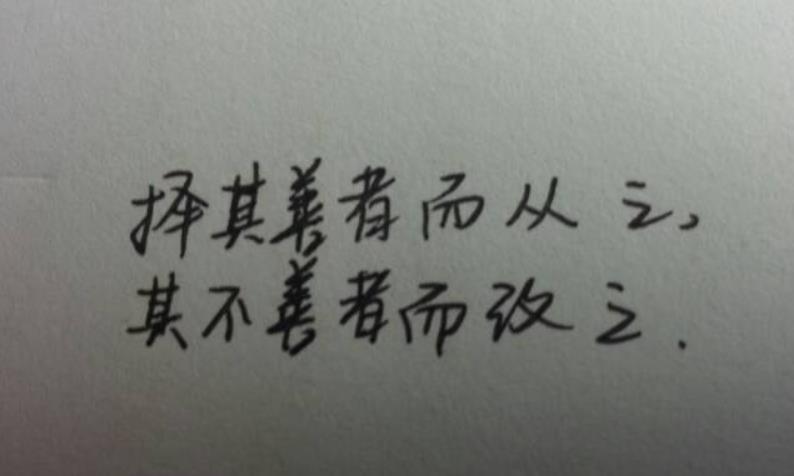 择其善者而从之,
其不善者而改之.